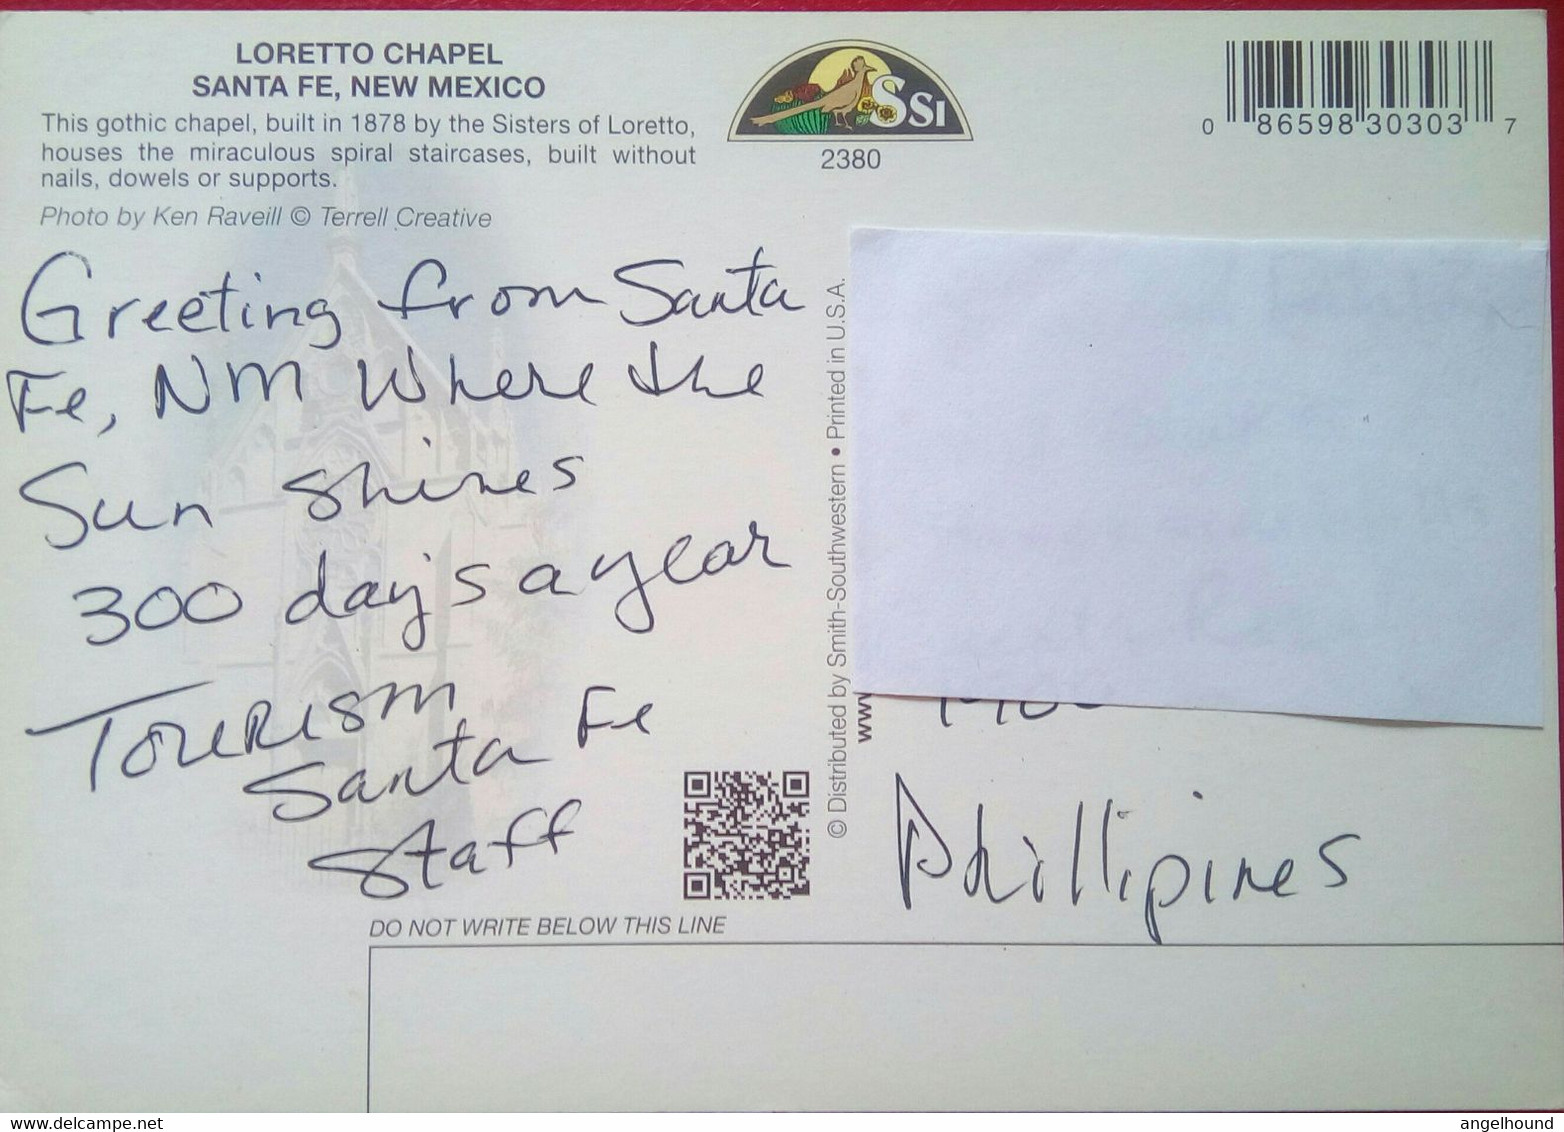 LORETTO CHAPEL
SANTA FE, NEW MEXICO
This gothic chapel, built in 1878 by the Sisters of Loretto,
houses the miraculous spiral staircases, built without
nails, dowels or supports.
Photo by Ken Raveill © Terrell Creative
SSI
2380
0 86598 30303 7
Greeting from Santa
Fe, NM Where the
Sun shines
300 day's a year
Tourism
Santa Fe
Staff
© Distributed by Smith-Southwestern • Printed in U.S.A.
www
Phillipines
DO NOT WRITE BELOW THIS LINE
www.delcampe.net
angelhound